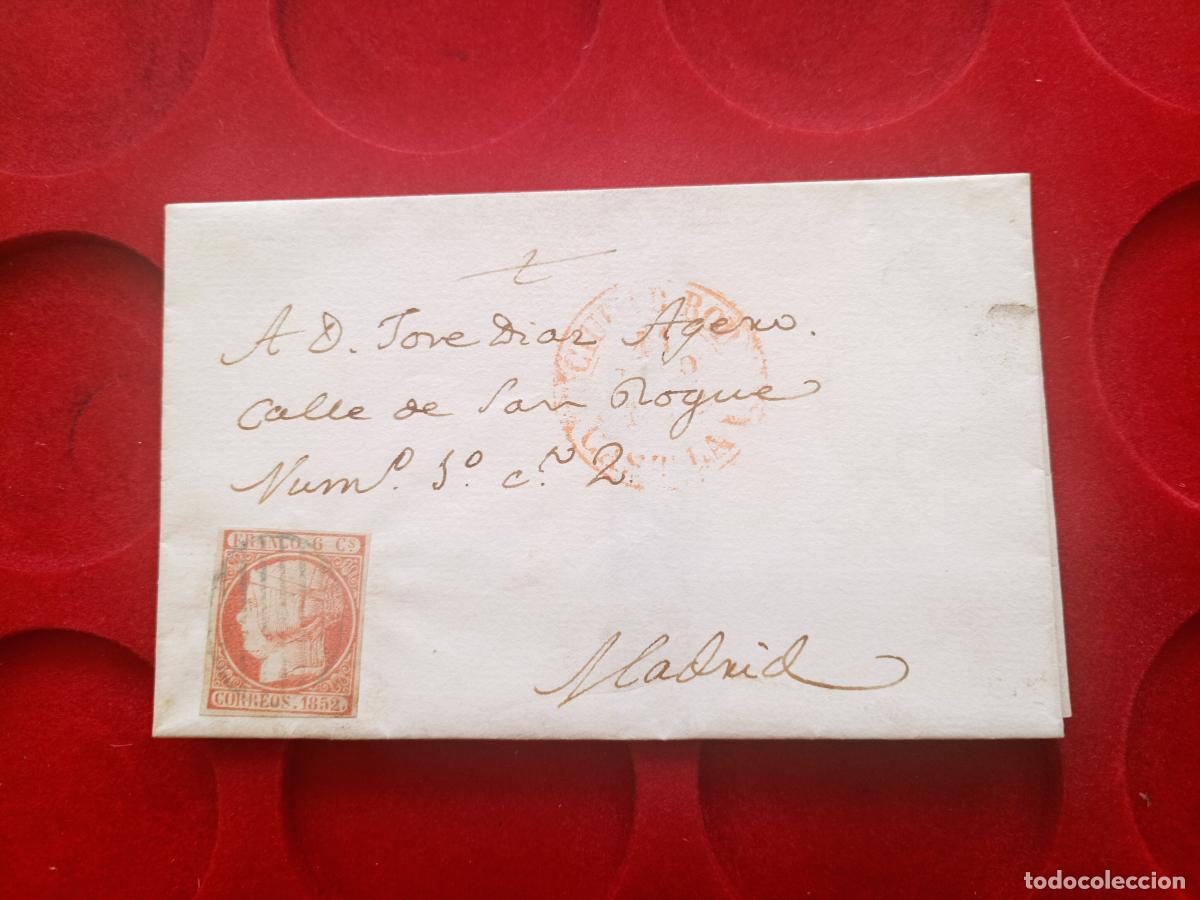 A D. Jose Diaz Agero.
Calle de San Roque
Num.º 5.º c.to 2.
Madrid
CIUDAD-ROD
FRANCO 6 Cs
CORREOS. 1852.
todocoleccion